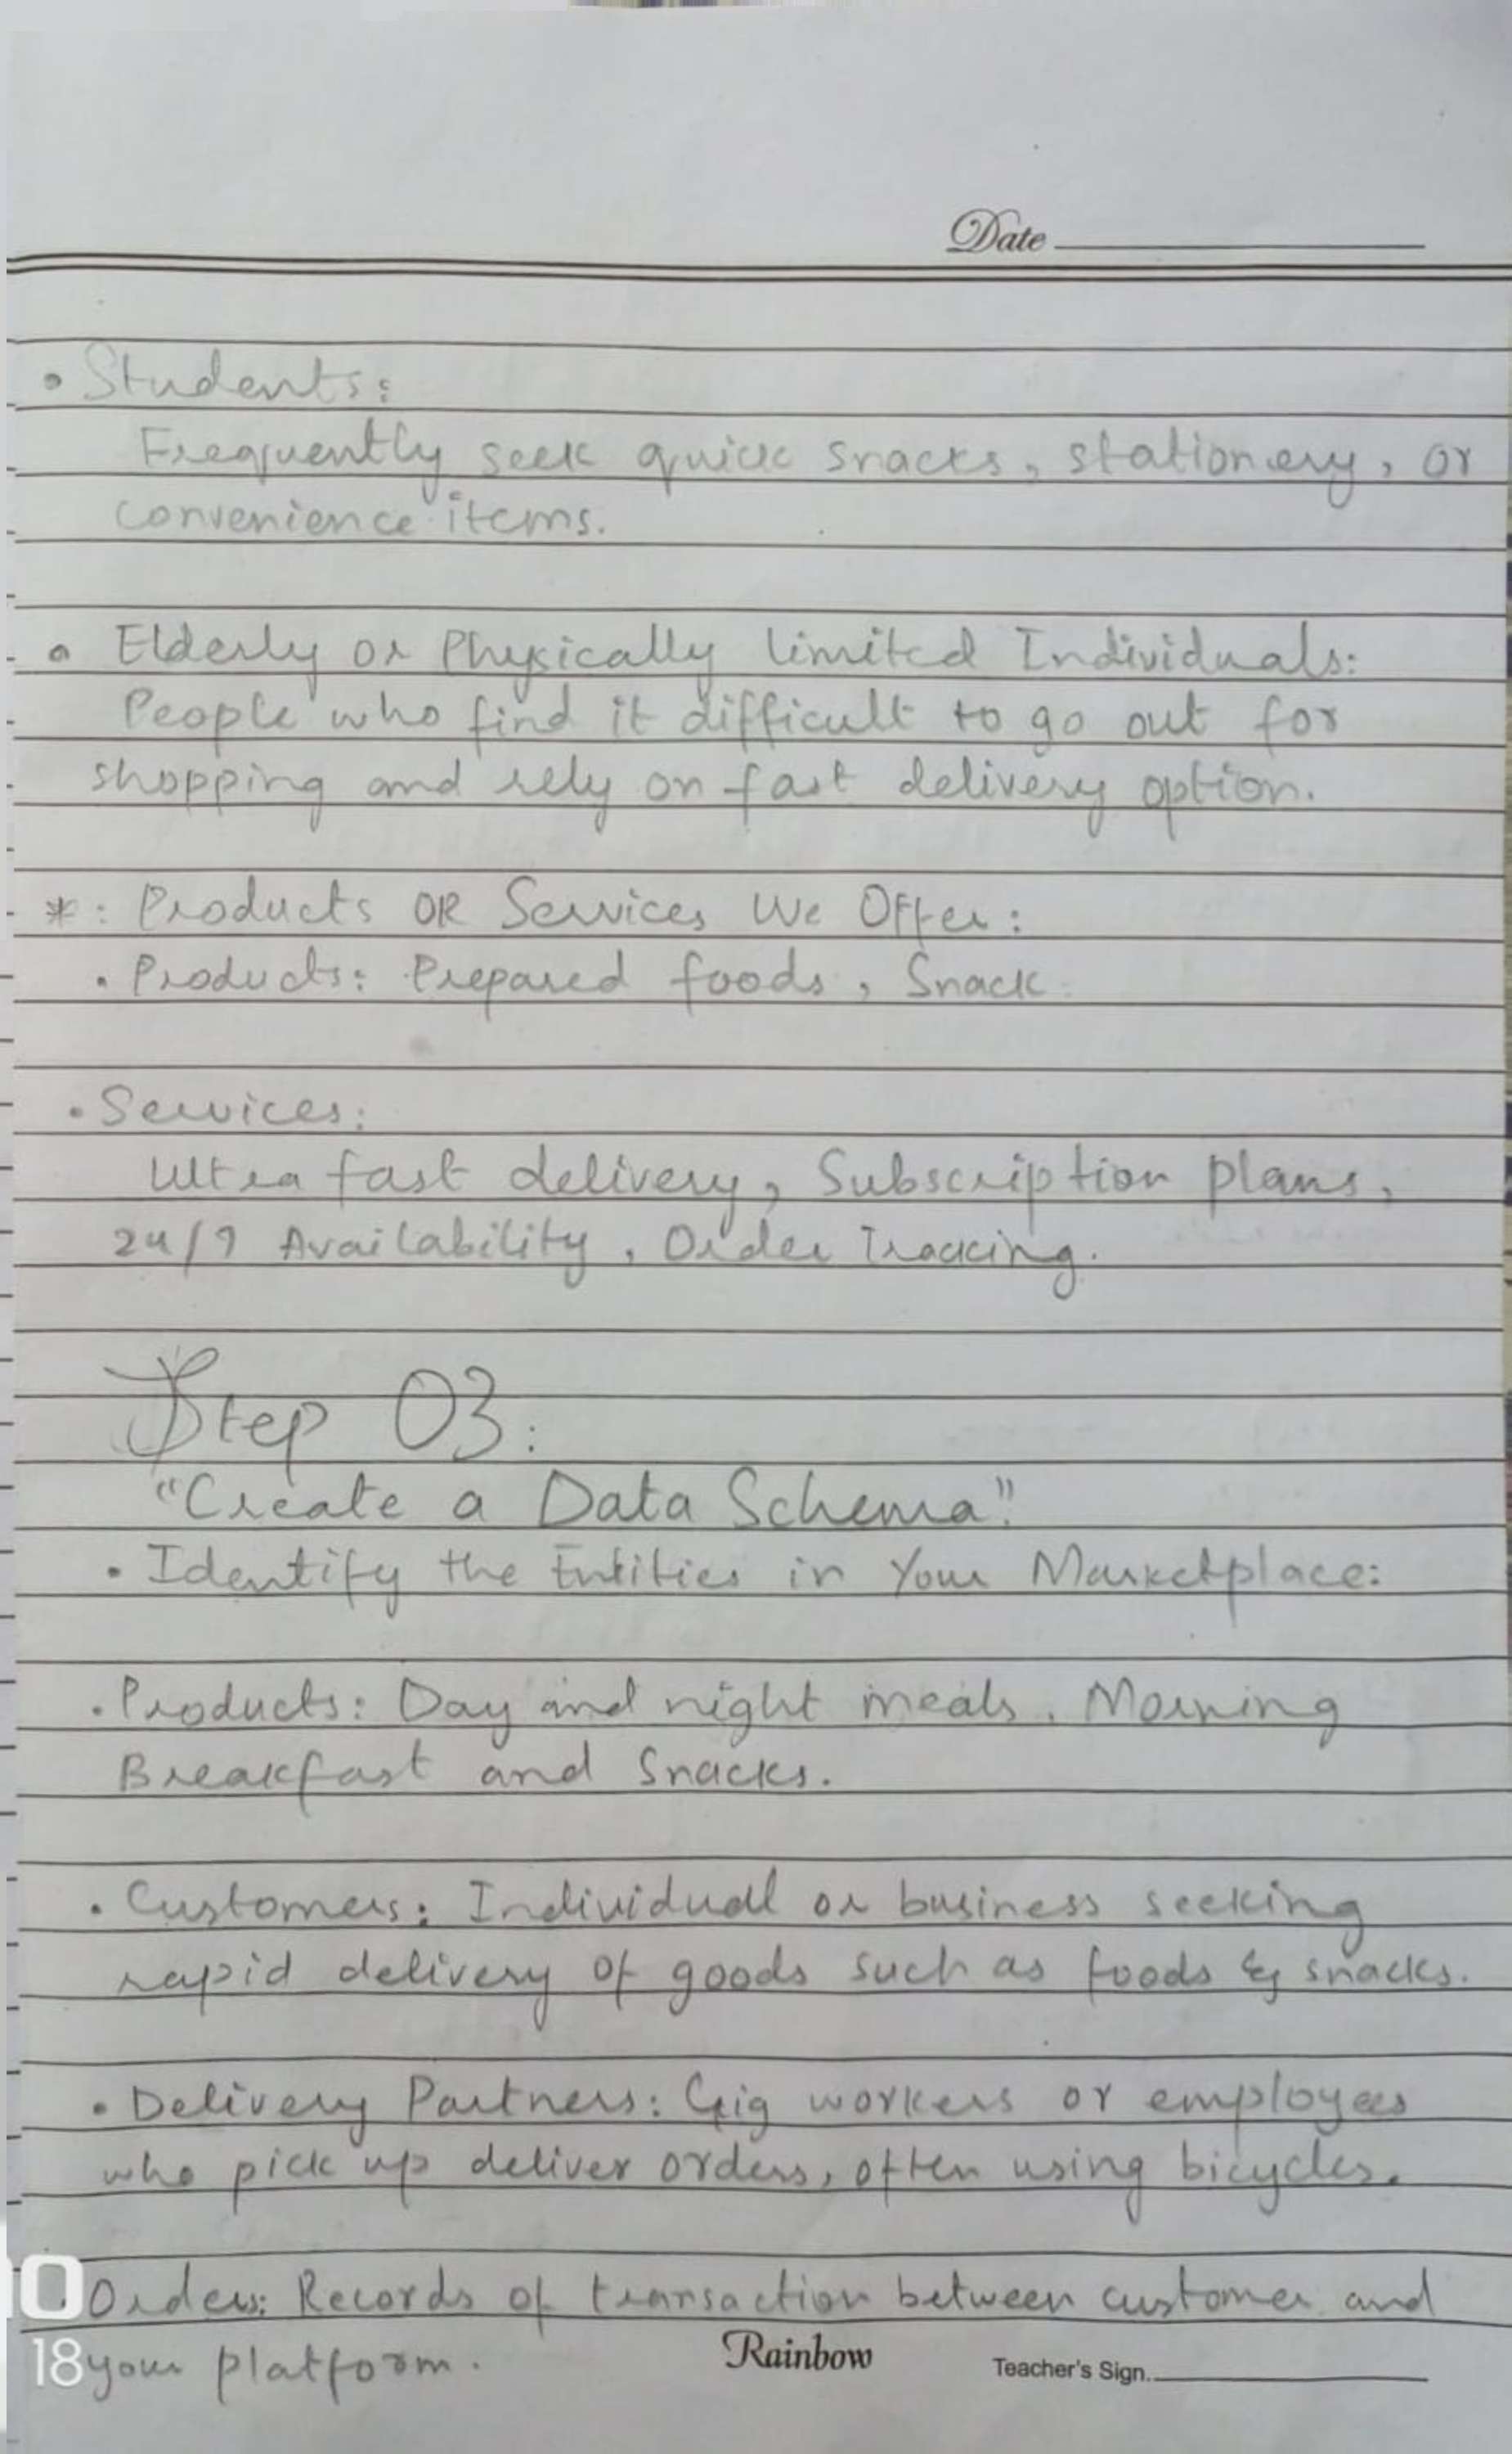 Date
• Students:
Frequently seek quick snacks, stationery, or
convenience items.
• Elderly or Physically limited Individuals:
People who find it difficult to go out for
shopping and rely on fast delivery option.
*: Products OR Services We Offer:
• Products: Prepared foods, Snack.
• Services:
Ultra fast delivery, Subscription plans,
24/7 Availability, Order Tracking.
Step 03:
"Create a Data Schema".
• Identify the Entities in Your Marketplace:
• Products: Day and night meals, Morning
Breakfast and Snacks.
• Customers: Individuall or business seeking
rapid delivery of goods such as foods & snacks.
• Delivery Partners: Gig workers or employees
who pick up deliver orders, often using bicycles.
• Orders: Records of transaction between customer and
18 your platform.
Rainbow
Teacher's Sign.